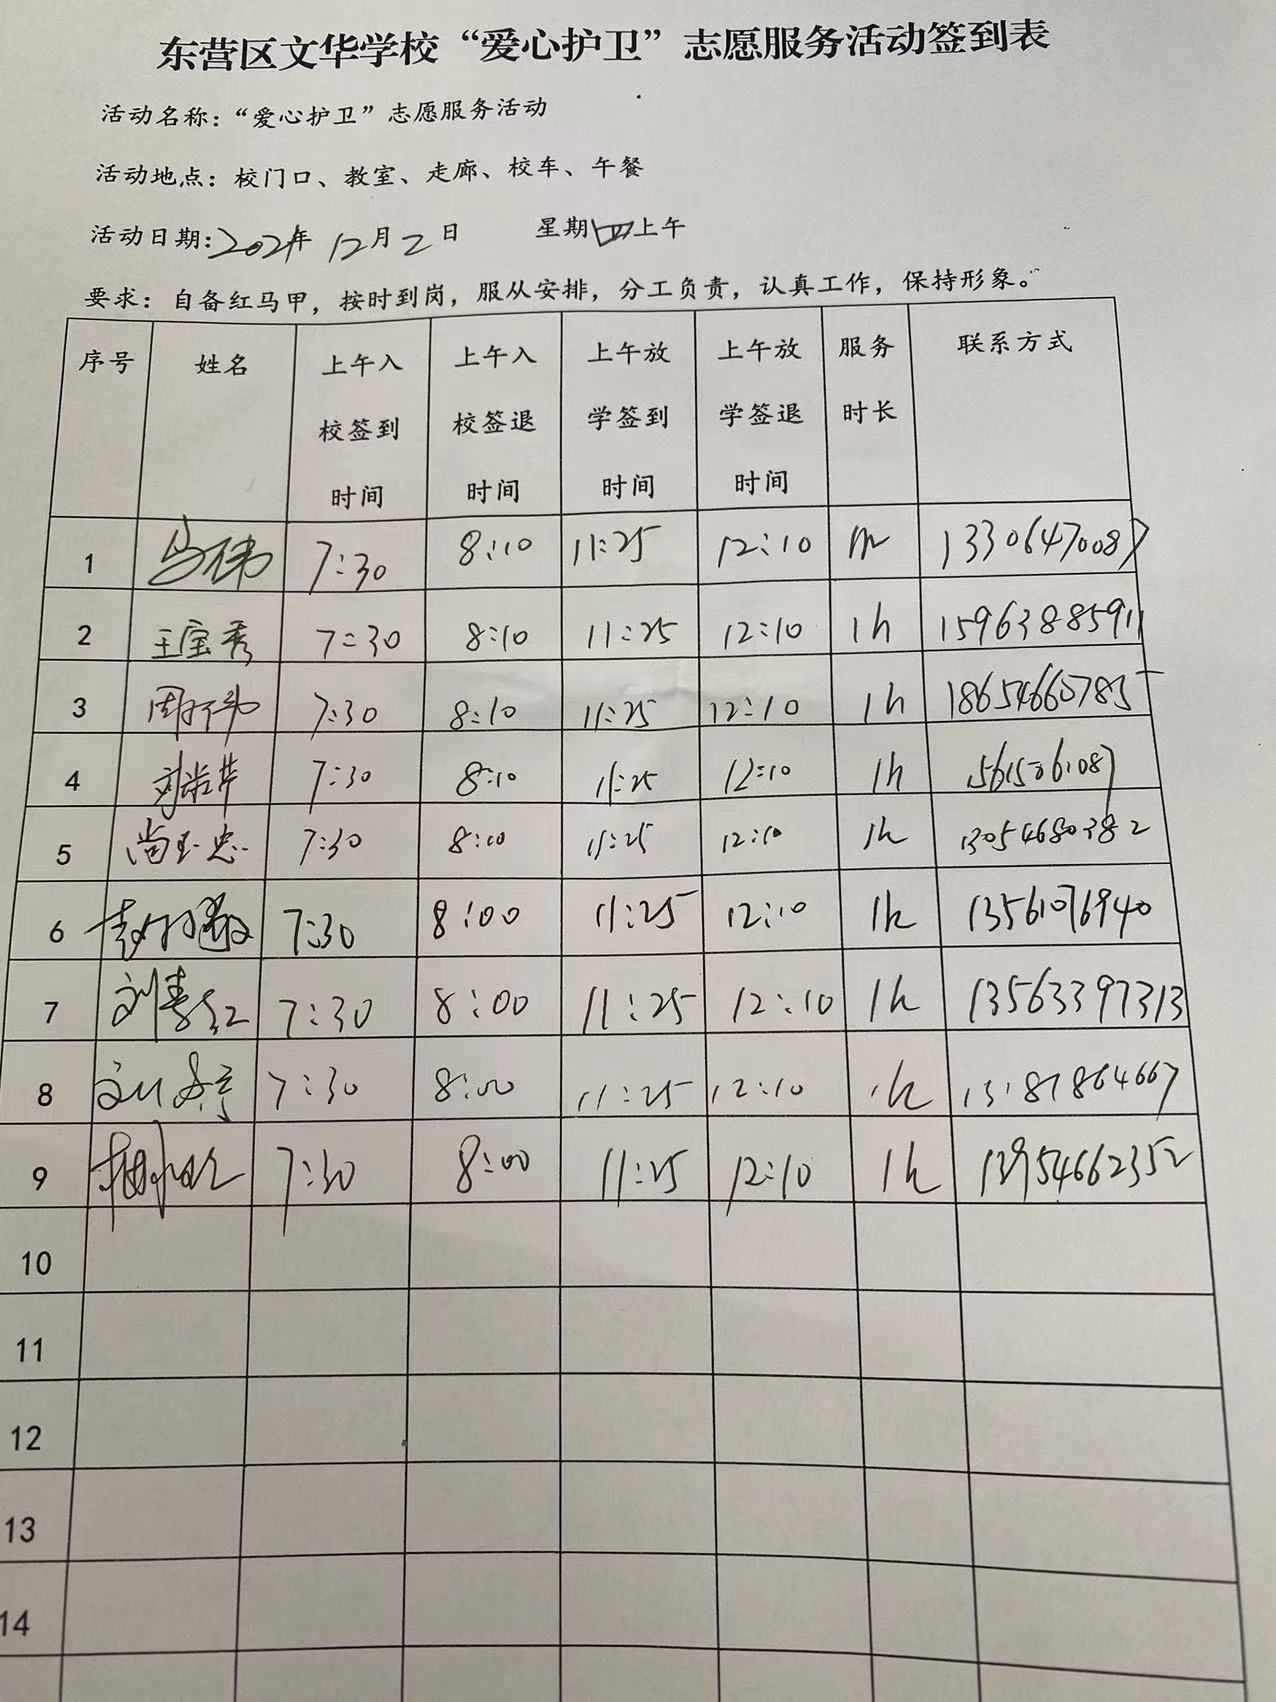 东营区文华学校“爱心护卫”志愿服务活动签到表
活动名称：“爱心护卫”志愿服务活动
活动地点：校门口、教室、走廊、校车、午餐
活动日期：2021年 12月2日 星期四上午
要求：自备红马甲，按时到岗，服从安排，分工负责，认真工作，保持形象。
序号 姓名 上午入校签到时间 上午入校签退时间 上午放学签到时间 上午放学签退时间 服务时长 联系方式
1 马伟 7:30 8:10 11:25 12:10 1h 13306470087
2 王宝秀 7:30 8:10 11:25 12:10 1h 15963885911
3 7:30 8:10 11:25 12:10 1h 18654660785
4 7:30 8:10 11:25 12:10 1h 15615861087
5 尚玉忠 7:30 8:00 11:25 12:10 1h 13054680382
6 7:30 8:00 11:25 12:10 1h 13561076940
7 刘春红 7:30 8:00 11:25 12:10 1h 13563397313
8 7:30 8:00 11:25 12:10 1h 13187864667
9 7:30 8:00 11:25 12:10 1h 13954662352
10
11
12
13
14